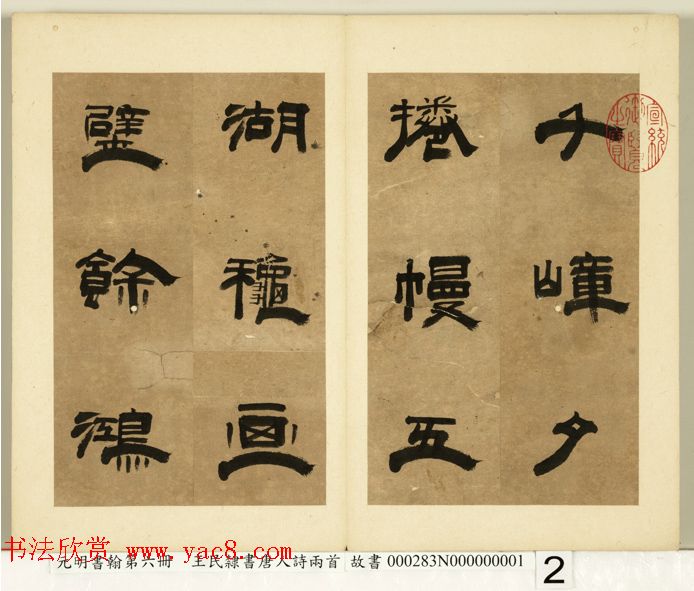 千嶂夕
捲幔五
湖穐画
壁餘鴻
宣統
御覽
之寶
书法欣赏 www.yac8.com
元明書翰第六冊 王民隸書唐人詩兩首 故書 000283N000000001
2